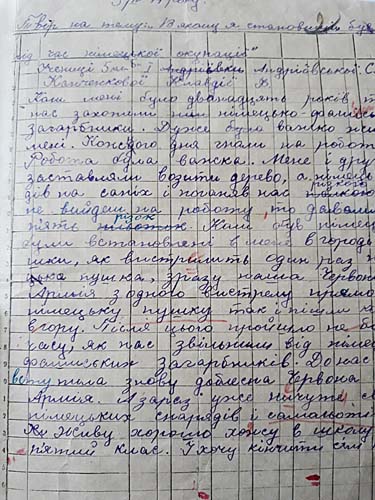 Твір на тему: "В якому я становищі був
під час німецької окупації"
Учениці 5 кл. Андріївської С.
Клавдії
Коли мені було дванадцять років
нас захопили німецько-фашис
загарбники. Дуже було важко
мені. Кожного дня гнали на робот
Робота була важка. Мене і дру
заставляли возити дерево, а німець
дів на саніх і поганяв нас
не вийдеш на роботу то давали
п'ять Коли був німец
були встановлені в мене в город
шки, як вистрилить один раз
пушка, зразу наша Червон
Армия з одного вистрелу прямо
німецьку пушку так і пішли
вгору. Після цього пройшло не ба
часу, як нас звільнили від німец
фашиських загарбників. До нас
вступила знову доблесна Червона
Армия. А зарісз уже ничуте
німецьких снарядів і самальоті
Як живу хорошо хожу в школу
п'ятий клас. Я хочу кінчити сім